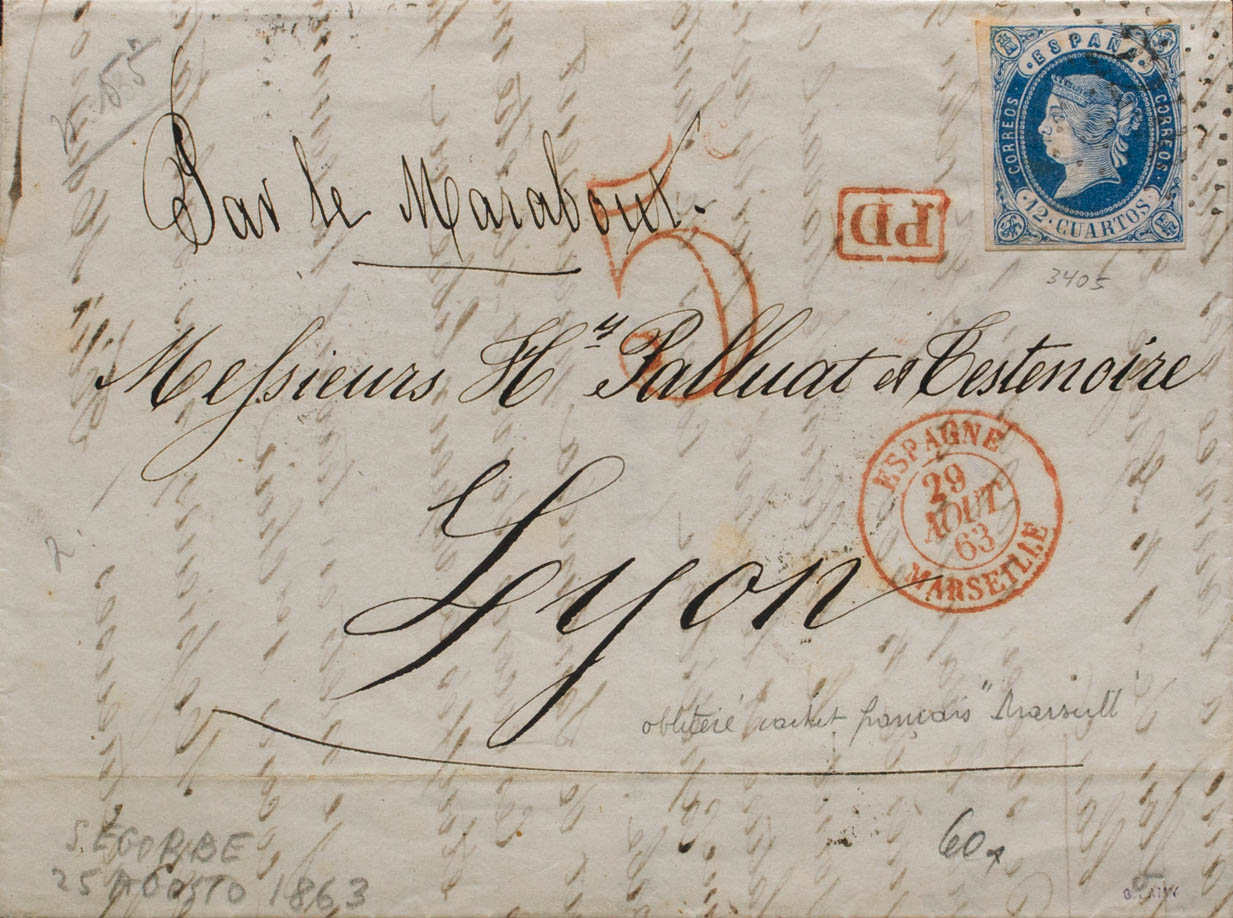 ESPAÑA
CORREOS
CORREOS
12 CUARTOS
3405
Par le Marabout.
5
PD
Messieurs Hy Palluat et Testenoire
ESPAGNE
29
AOUT
63
MARSEILLE
Lyon
2.
oblitéré cachet français "Marseill"
60
SEGORBE
25 AGOSTO 1863